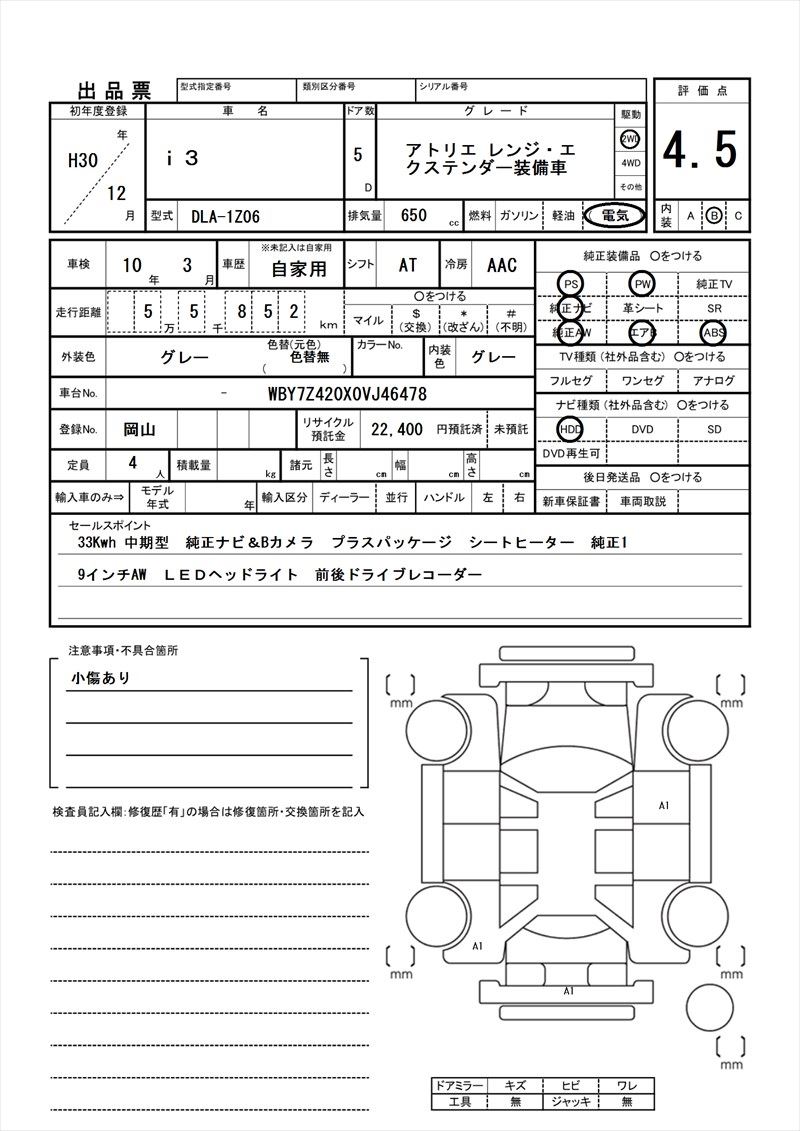 出品票 型式指定番号 類別区分番号 シリアル番号
初年度登録 車名 ドア数 グレード 駆動 評価点
H30 年 12 月 i3 5 D アトリエ レンジ・エ
クステンダー装備車 2WD 4WD その他 4.5
型式 DLA-1Z06 排気量 650 cc 燃料 ガソリン 軽油 電気 内装 A B C
車検 10 年 3 月 車歴 ※未記入は自家用 自家用 シフト AT 冷房 AAC
純正装備品 ○をつける
PS PW 純正TV
走行距離 5 万 5 千 8 5 2 km ○をつける
マイル $(交換) *(改ざん) #(不明)
純正ナビ 革シート SR
純正AW エアB ABS
外装色 グレー 色替(元色) ( 色替無 ) カラーNo. 内装色 グレー
TV種類(社外品含む) ○をつける
フルセグ ワンセグ アナログ
車台No. - WBY7Z420X0VJ46478
ナビ種類(社外品含む) ○をつける
HDD DVD SD
DVD再生可
登録No. 岡山 リサイクル預託金 22,400 円預託済 未預託
定員 4 人 積載量 kg 諸元 長さ cm 幅 cm 高さ cm
後日発送品 ○をつける
新車保証書 車両取説
輸入車のみ⇒ モデル年式 年 輸入区分 ディーラー 並行 ハンドル 左 右
セールスポイント
33Kwh 中期型 純正ナビ&Bカメラ プラスパッケージ シートヒーター 純正1
9インチAW LEDヘッドライト 前後ドライブレコーダー
注意事項・不具合箇所
小傷あり
検査員記入欄:修復歴「有」の場合は修復箇所・交換箇所を記入
mm mm
A1
A1
mm mm
A1
mm
ドアミラー キズ ヒビ ワレ
工具 無 ジャッキ 無